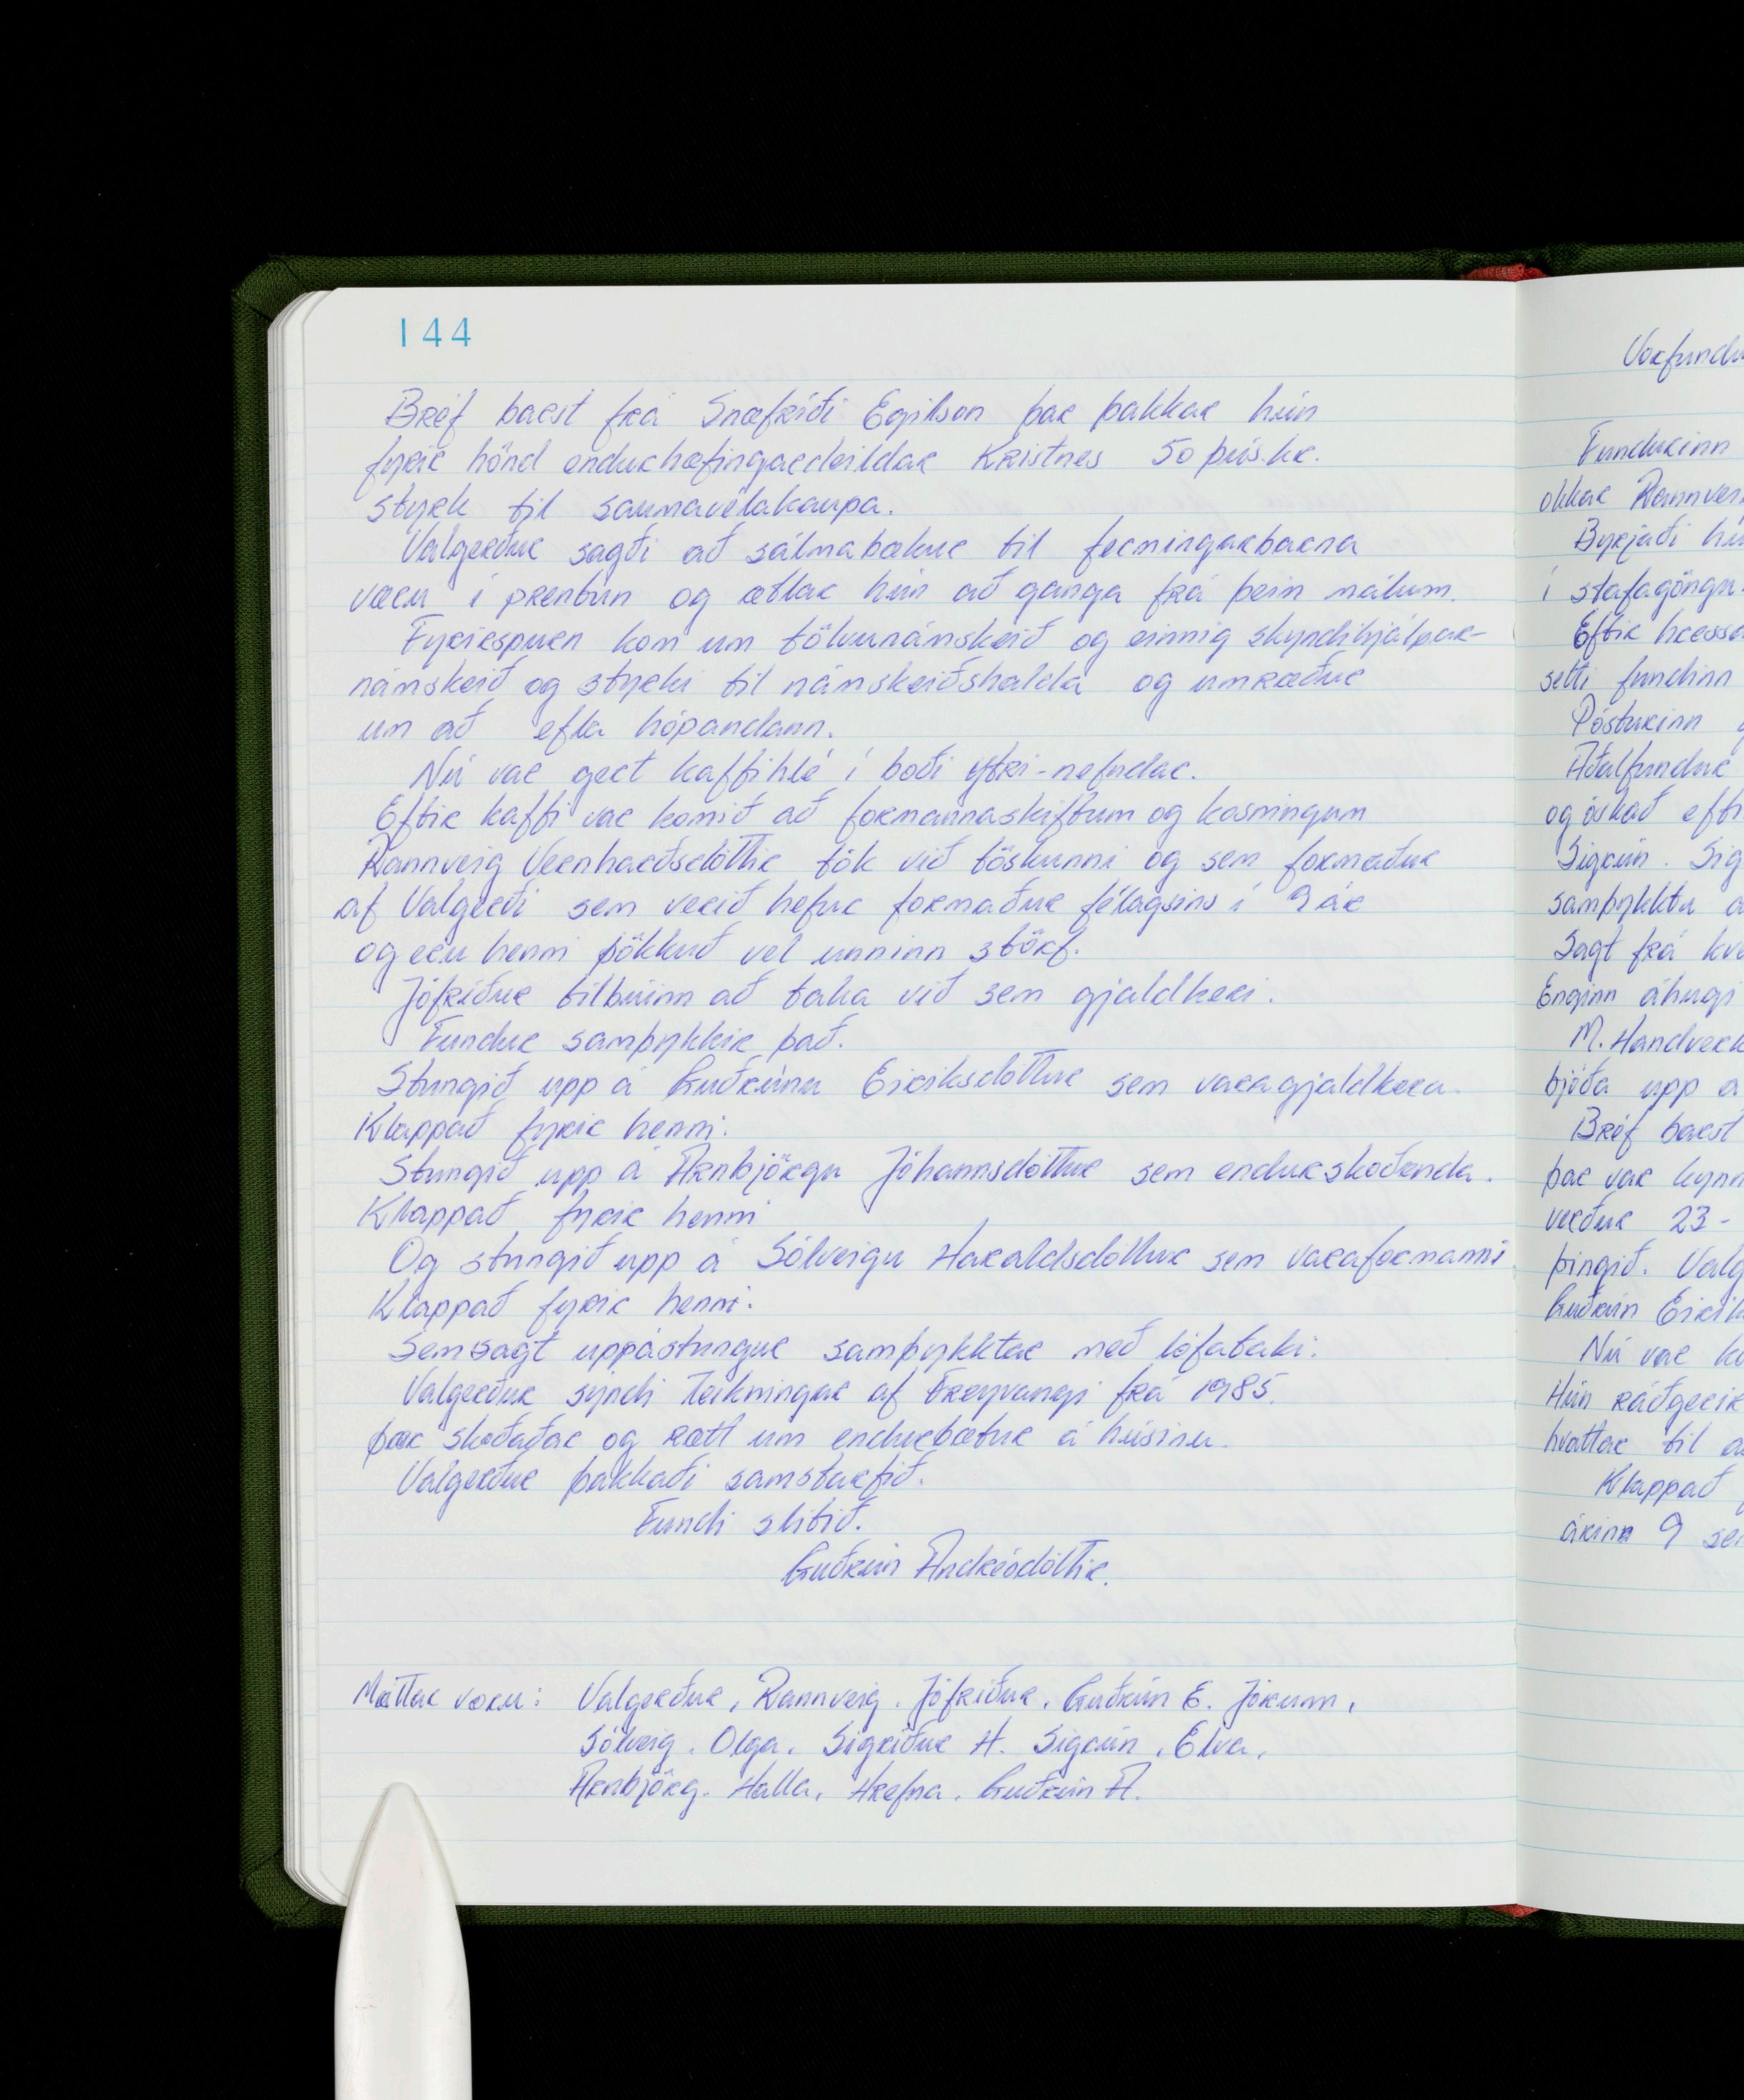 144
Bréf barst frá Snæfríði Egilson þar þakkar hún
fyrir hönd endurhæfingardeildar Kristnes 50 þús.kr.
styrk til saumavélakaupa.
Valgerður sagði að sálmabækur til fermingarbarna
væru í prentun og ætlar hún að ganga frá þeim málum.
Fyrirspurn kom um tölvunámskeið og einnig skyndihjálpar-
námskeið og styrki til námskeiðshalda og umræður
um að efla hópandann.
Nú var gert kaffihlé í boði ytri-nefndar.
Eftir kaffi var komið að formannaskiftum og kosningum
Rannveig Vernharðsdóttir tók við töskunni og sem formaður
af Valgerði sem verið hefur formaður félagsins í 9 ár
og eru henni þökkuð vel unninn störf.
Jófríður tilbúinn að taka við sem gjaldkeri.
Fundur samþykkir það.
Stungið upp á Guðrúnu Eiriksdóttur sem varagjaldkera.
Klappað fyrir henni.
Stungið upp á Arnbjörgu Jóhannsdóttur sem endurskoðanda.
Klappað fyrir henni
Og stungið upp á Sólveigu Haraldsdóttur sem varaformanni.
Klappað fyrir henni.
Semsagt uppástungur samþykktar með lófataki.
Valgerður sýndi teikningar af Freyvangi frá 1985.
þær skoðaðar og rætt um endurbætur á húsinu.
Valgerður þakkaði samstarfið.
Fundi slitið.
Guðrún Andrésdóttir.
Mættar voru: Valgerður, Rannveig, Jófríður, Guðrún E. Jórunn,
Sólveig, Olga, Sigríður H. Sigrún, Elva,
Arnbjörg. Halla, Hrefna, Guðrún A.
Fundurinn
okkar
Byrjaði
í stafagöngu.
Eftir
setti fundinn
Pósturinn
Aðalfundur
og óskað
Sigrún.
samþykktu
Sagt frá
Enginn áhugi
M.
bjóða upp á
Bréf barst
þar var
verður 23-
þingið.
Guðrún
Nú var
Hún
hvattar til
Klappað
árin 9